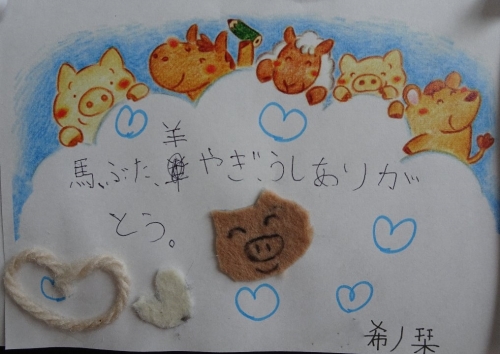 馬、ぶた、羊やぎ、うしありが
とう。
希ノ栞